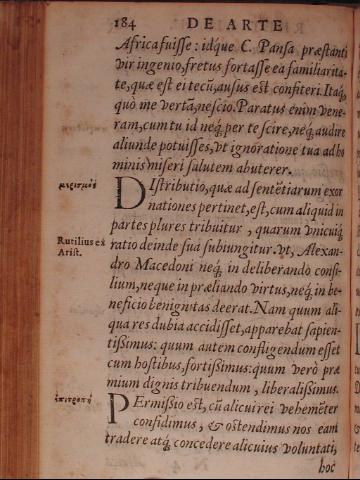 184 DE ARTE
Africa fuisse: idq́ue C. Pansa præstanti
vir ingenio, fretus fortasse ea familiarita-
te, quæ est ei tecū, ausus est confiteri. Itaq́,
quò me vertā, nescio. Paratus enim vene-
ram, cum tu id neq́; per te scire, neq́, audire
aliunde potuisses, vt ignoratione tua ad ho
minis miseri salutem abuterer.
μερισμός
DIstributio, quæ ad sentētiarum exor
nationes pertinet, est, cum aliquid in
partes plures tribuitur, quarum vnicuiq́;
Rutilius ex
Arist.
ratio deinde sua subiungitur. vt, Alexan-
dro Macedoni neq́; in deliberando consi-
lium, neque in præliando virtus, neq́; in be-
neficio benignitas deerat. Nam quum ali-
qua res dubia accidisset, apparebat sapien-
tissimus: quum autem confligendum esset
cum hostibus, fortissimus: quum verò præ
mium dignis tribuendum, liberalissimus.
ἐπιτροπή
PErmissio est, cū alicui rei vehemēter
confidimus, & ostendimus nos eam
tradere atq́; concedere alicuius voluntati,
hoc